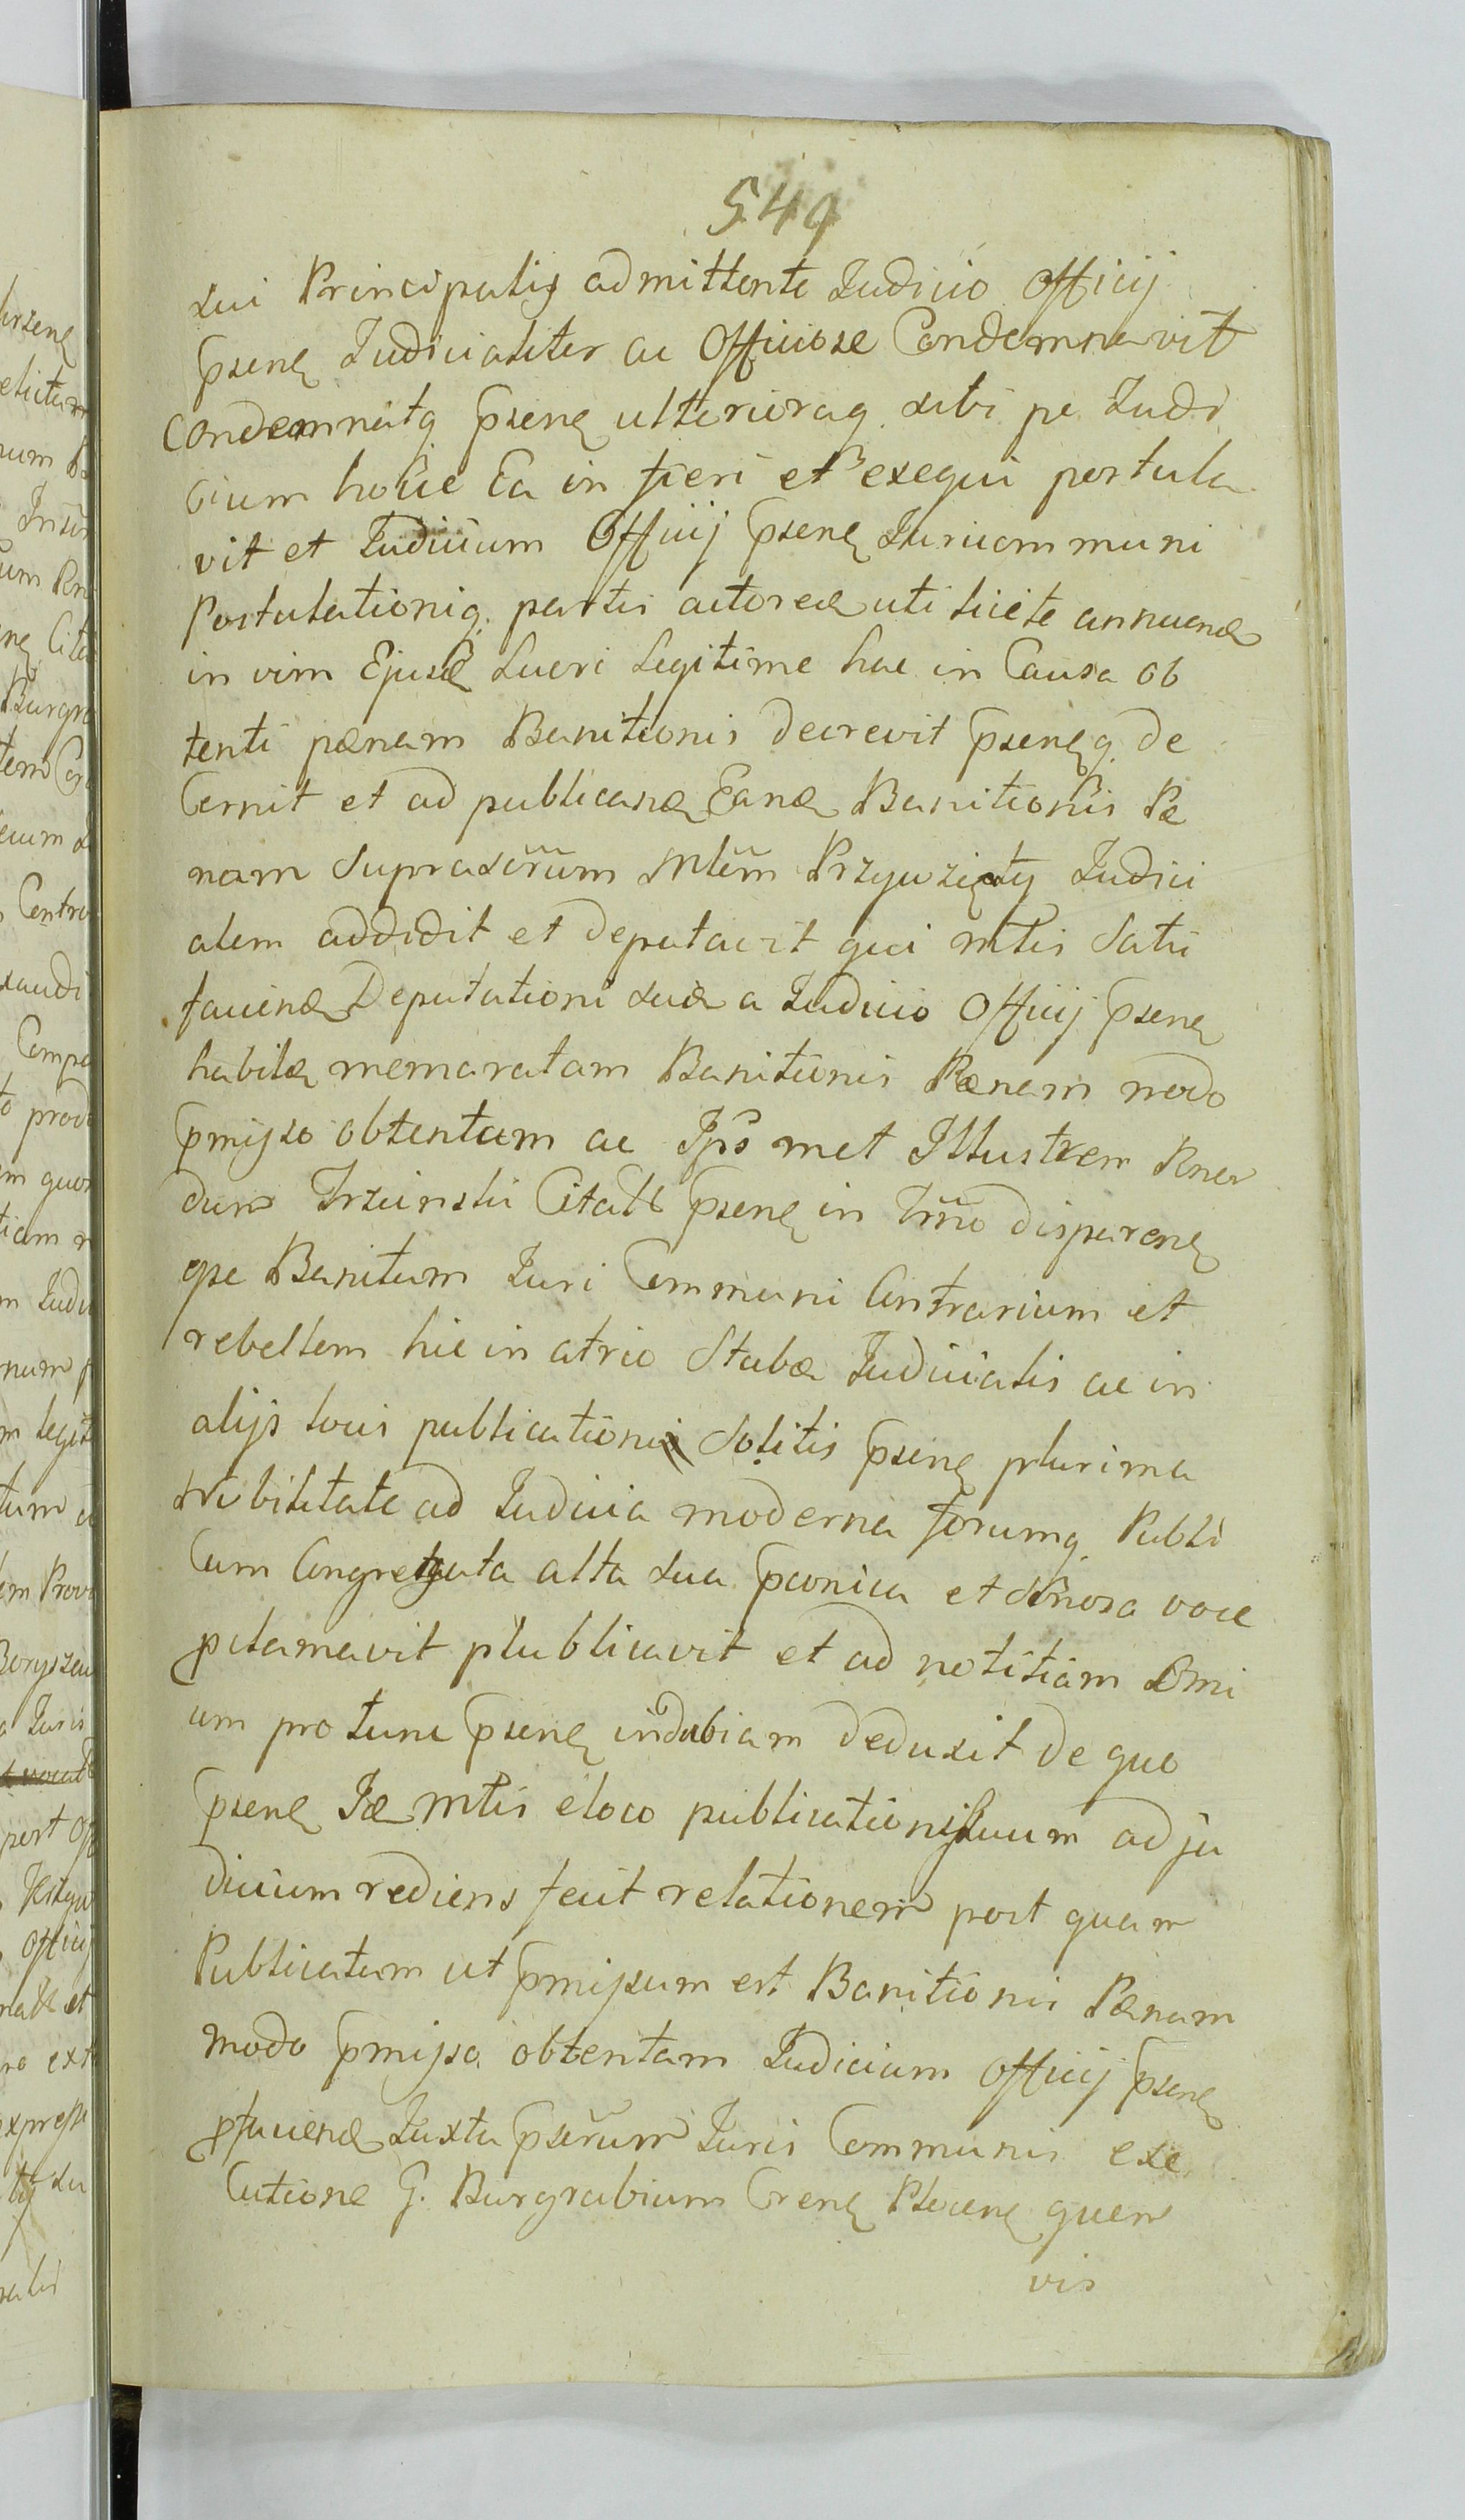 549
sui Principalis admittente Judicio Officij
psenę Judicialiter ac Officiose Condemnavit
Condemnatq psenę ulterioraq sibi pe Judi
cium hocce Ea in fieri et exequi postula
vit et Judicium Officij psenę Juri communi
Postulationiq partis actoreæ uti licite annuenđ
in vim Ejusđ Lucri Legitime hac in Causa ob
tenti pænam Banitionis decrevit psenęq de
Cernit et ad publicanđ Eanđ Banitionis Pæ
nam Suprascrũm Mlẽm Przywzięty Judici
alem addidit et deputavit qui mtis Satis
facienđ Deputationi suæ a Judicio Officij psenę
habitæ memoratam Banitionis Pænam modo
pmisso obtentam ac Ips met Illustrem
Citatt psenę in Trno disparenę
qse Banitum Juri Communi Contrarium et
rebellem hic in atrio Stubæ Judicialis ac in
alijs locis publicationi Solitis psenę plurima
Nobilitate ad Judicia moderna forumq Publi
Cum Congregata alta sua pconica et Sonosa voce
pclamavit plublicavit et ad notitiam Omi
um pro tunc psenę indubiam deduxit de quo
psenę Iđ Mtis eloco publicationis suum ad ju
dicium rediens fecit relationem post quam
Publicatam ut pmissum est Banitionis Pænam
modo pmisso obtentam Judicium Officij psenę
psfacienđ Juxta pscrũm Juris Communis exe
Cutione G. Burgrabium Crenę Plocenę quem
vis